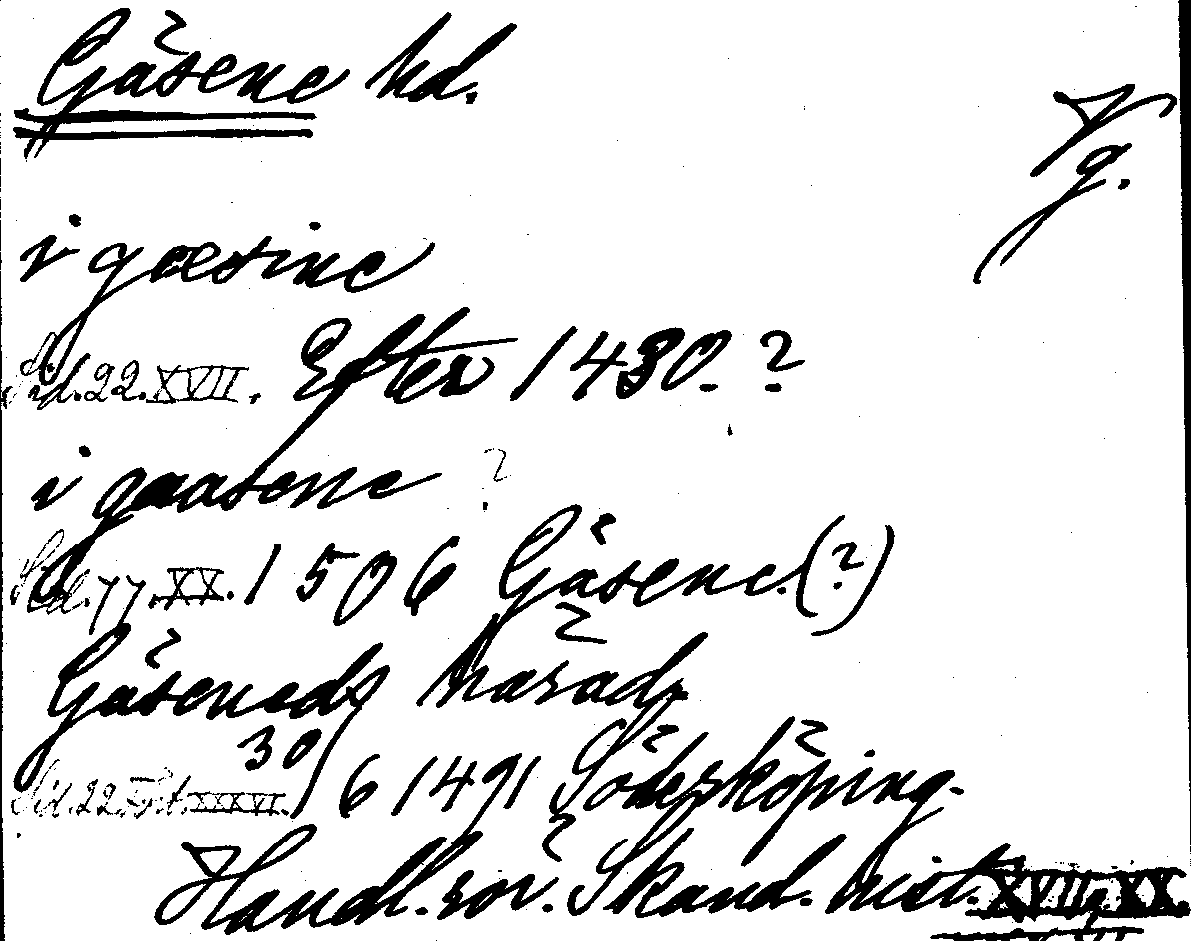 Gäsene hd.
Vg.
i gæsine
Sid. 22. XVII. Efter 1430.?
i gaasene ?
Sid. 77. XX. 1506 Gäsene. (?)
Gäseneds härad
Sid. 22. Frt. XXXVI. 30/6 1491 Söderköping.
Handl. rör. Skand. hist. XVII, XX.